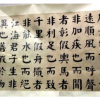 遠順風而呼聲
非加疾也而聞
者彰假輿馬者
非利足也而致
千里假舟楫者
非能水也而絕
江河君子生非